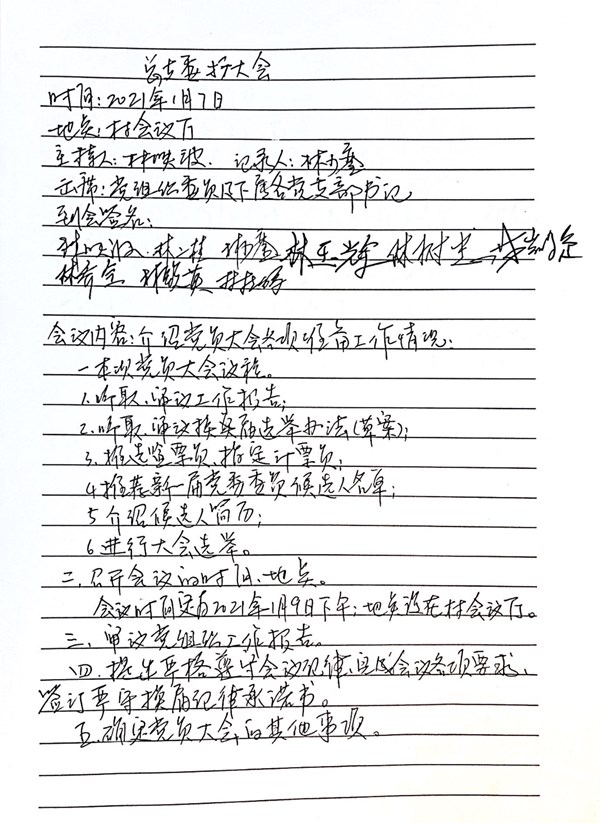 总支委扩大会
时间:2021年1月7日
地点:村会议厅
主持人:林 波. 记录人:林
出席:党组织委员及下属各党支部书记
到会签名:
林二桂 林玉辉 林树
林
会议内容:介绍党员大会各项准备工作情况:
一本次党员大会议程。
1.听取、审议工作报告;
2.听取、审议换届选举办法(草案);
3.推选监票员、指定计票员;
4推荐新一届党务委员候选人名单;
5介绍候选人简历;
6进行大会选举。
二.召开会议的时间、地点。
会议时间定有2021年1月9日下午;地点设在村会议厅。
三.审议党组织工作报告。
四.提出严格遵守会议纪律,完成会议各项要求、
签订严守换届纪律承诺书。
五.确定党员大会的其他事项。